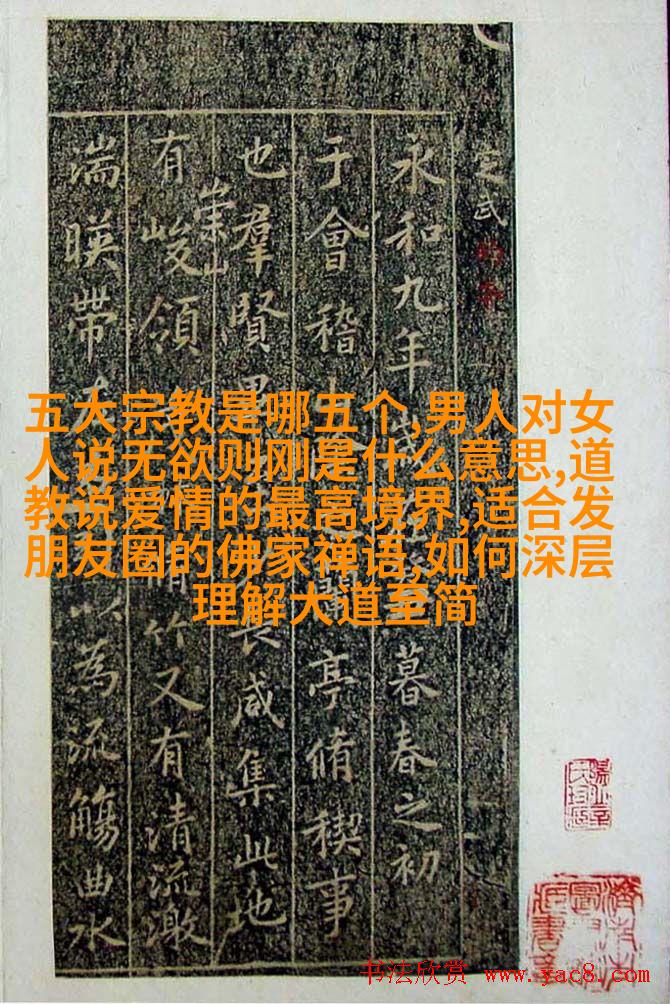 五大宗教是哪五个,男人对女
人说无欲则刚是什么意思,道
教说爱情的最高境界,适合发
朋友圈的佛家禅语,如何深层
理解大道至简
定武
永和九年歲 暮春之初
于會稽 蘭亭脩稧事
也羣賢畢 長咸集此地
有崇山峻領 竹又有清流激
湍暎帶左 以為流觴曲水
书法欣赏 www.yac8.com